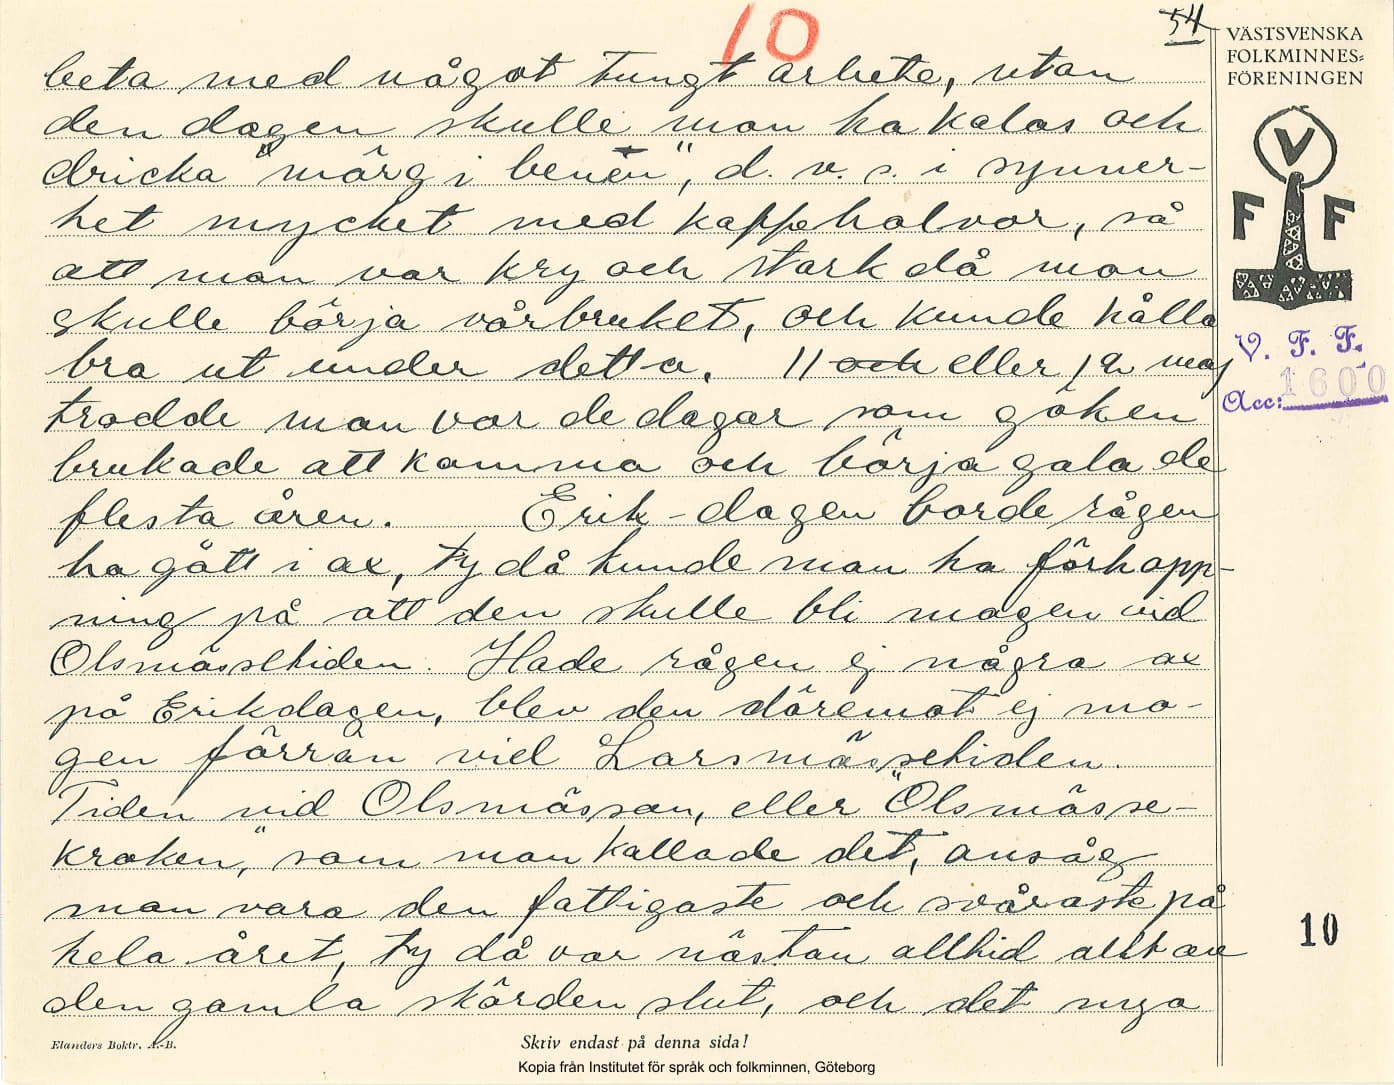 10
54
VÄSTSVENSKA
FOLKMINNES-
FÖRENINGEN
V
F F
V. F. F.
Acc: 1600
beta med något tungt arbete, utan
den dagen skulle man ha kalas och
dricka "märg i benen", d. v. s. i synner-
het mycket med kaffehalvor, så
att man var kry och stark då man
skulle börja vårbruket, och kunde hålla
bra ut under detta. 11 och eller 12 maj
trodde man var de dagar som göken
brukade att komma och börja gala de
flesta åren. Erik-dagen borde rågen
ha gått i ax, ty då kunde man ha förhopp-
ning på att den skulle bli mogen vid
Olsmässetiden. Hade rågen ej några ax
på Erikdagen, blev den däremot ej mo-
gen förrän vid Larsmässetiden.
Tiden vid Olsmässan, eller "Olsmässe-
kroken," som man kallade det, ansåg
man vara den fattigaste och svåraste på
hela året, ty då var nästan alltid allt av
den gamla skörden slut, och det nya
10
Elanders Boktr. A.-B.
Skriv endast på denna sida!
Kopia från Institutet för språk och folkminnen, Göteborg